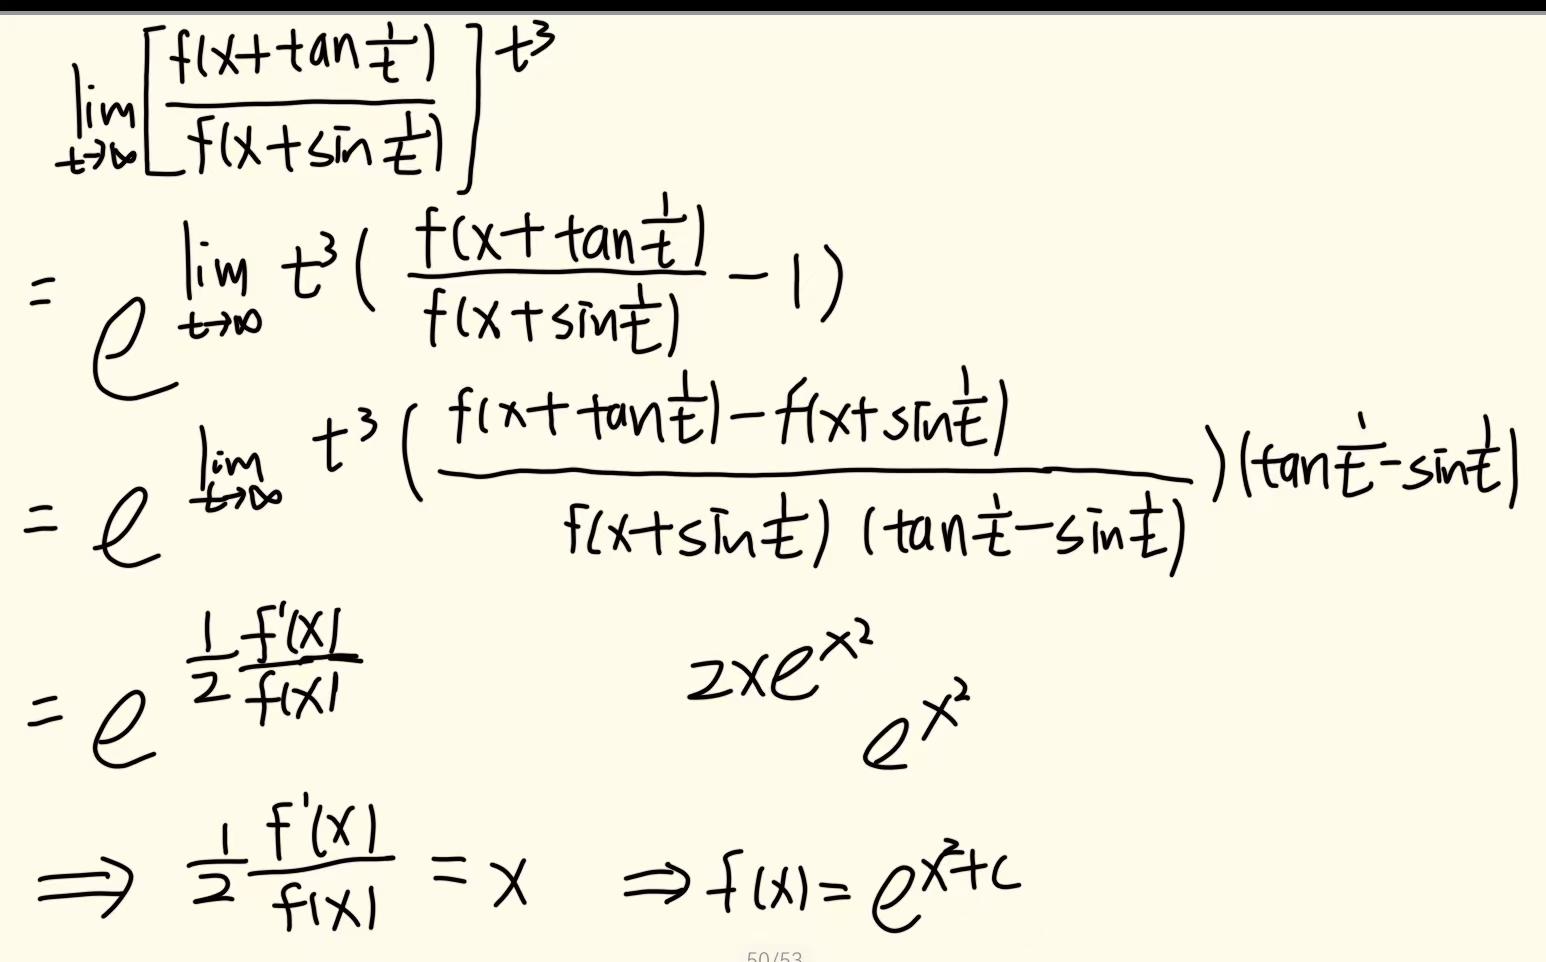 lim_{t→∞} [ f(x+tan 1/t) / f(x+sin 1/t) ]^{t^3}
= e^{lim_{t→∞} t^3 ( f(x+tan 1/t) / f(x+sin 1/t) - 1 )}
= e^{lim_{t→∞} t^3 ( (f(x+tan 1/t) - f(x+sin 1/t)) / (f(x+sin 1/t) (tan 1/t - sin 1/t)) ) (tan 1/t - sin 1/t)}
= e^{1/2 f'(x)/f(x)}
2xe^{x^2}
e^{x^2}
⇒ 1/2 f'(x)/f(x) = x ⇒ f(x) = e^{x^2+c}
50/53